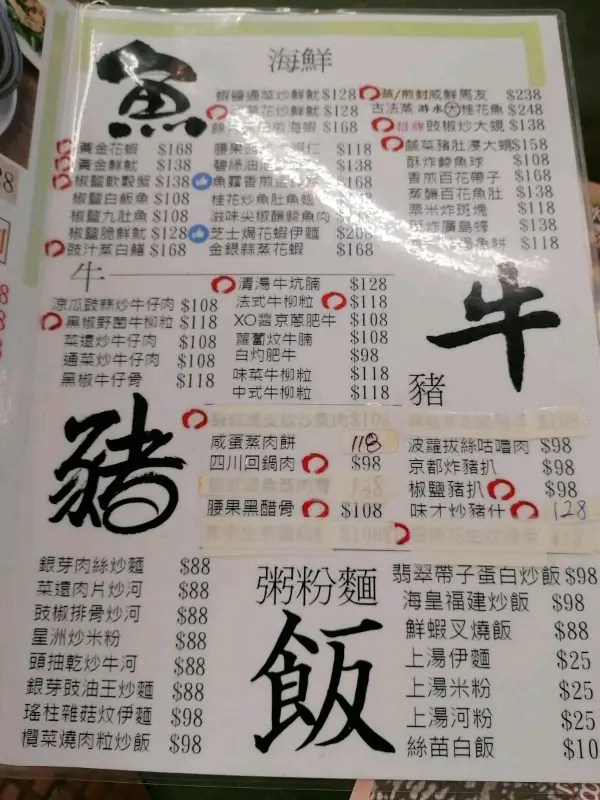 魚
海鮮
蝦醬通菜炒鮮魷$128
炒鮮魷$128
煎海蝦 $168
黃金花蝦 $168
黃金鮮魷 $138
椒鹽軟殼蟹$138
椒鹽白飯魚$108
椒鹽九肚魚$108
椒鹽脆鮮魷$128
豉汁蒸白鱔$168
腰果 仁 $118
碧綠油泡
魚露香煎
桂花炒魚肚
滋味尖椒釀鯪魚肉
芝士焗花蝦伊麵 $208
金銀蒜蒸花蝦 $168
蒸/煎封咸鮮馬友 $238
古法蒸游水大桂花魚$248
招牌豉椒炒大蜆$138
鹹菜豬肚浸大蜆$158
酥炸鯪魚球 $108
香煎百花帶子 $168
蒸釀百花魚肚 $138
粟米炸斑塊 $118
酥炸廣島蠔 $138
魚鮮 $118
牛
涼瓜豉蒜炒牛仔肉 $108
黑椒野菌牛柳粒 $118
菜遠炒牛仔肉 $108
通菜炒牛仔肉 $108
黑椒牛仔骨 $118
清湯牛坑腩 $128
法式牛柳粒 $118
XO醬京蔥肥牛 $108
蘿蔔炆牛腩 $108
白灼肥牛 $98
味菜牛柳粒 $118
中式牛柳粒 $118
牛
豬
豬
咸蛋蒸肉餅 118
四川回鍋肉 $98
腰果黑醋骨 $108
波蘿拔絲咕嚕肉 $98
京都炸豬扒 $98
椒鹽豬扒 $98
味才炒豬什 128
粥粉麵
飯
銀芽肉絲炒麵 $88
菜遠肉片炒河 $88
豉椒排骨炒河 $88
星洲炒米粉 $88
頭抽乾炒牛河 $88
銀芽豉油王炒麵 $88
瑤柱雜菇炆伊麵 $98
欖菜燒肉粒炒飯 $98
翡翠帶子蛋白炒飯$98
海皇福建炒飯 $98
鮮蝦叉燒飯 $88
上湯伊麵 $25
上湯米粉 $25
上湯河粉 $25
絲苗白飯 $10